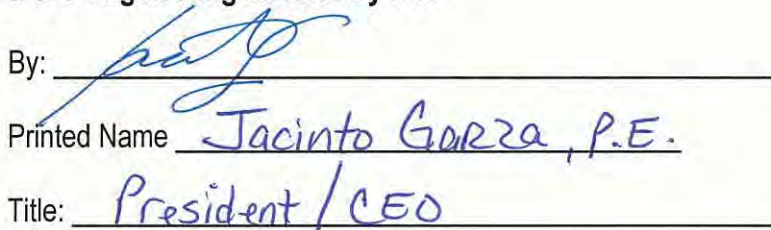 By:
Printed Name Jacinto Garza, P.E.
Title: President / CEO